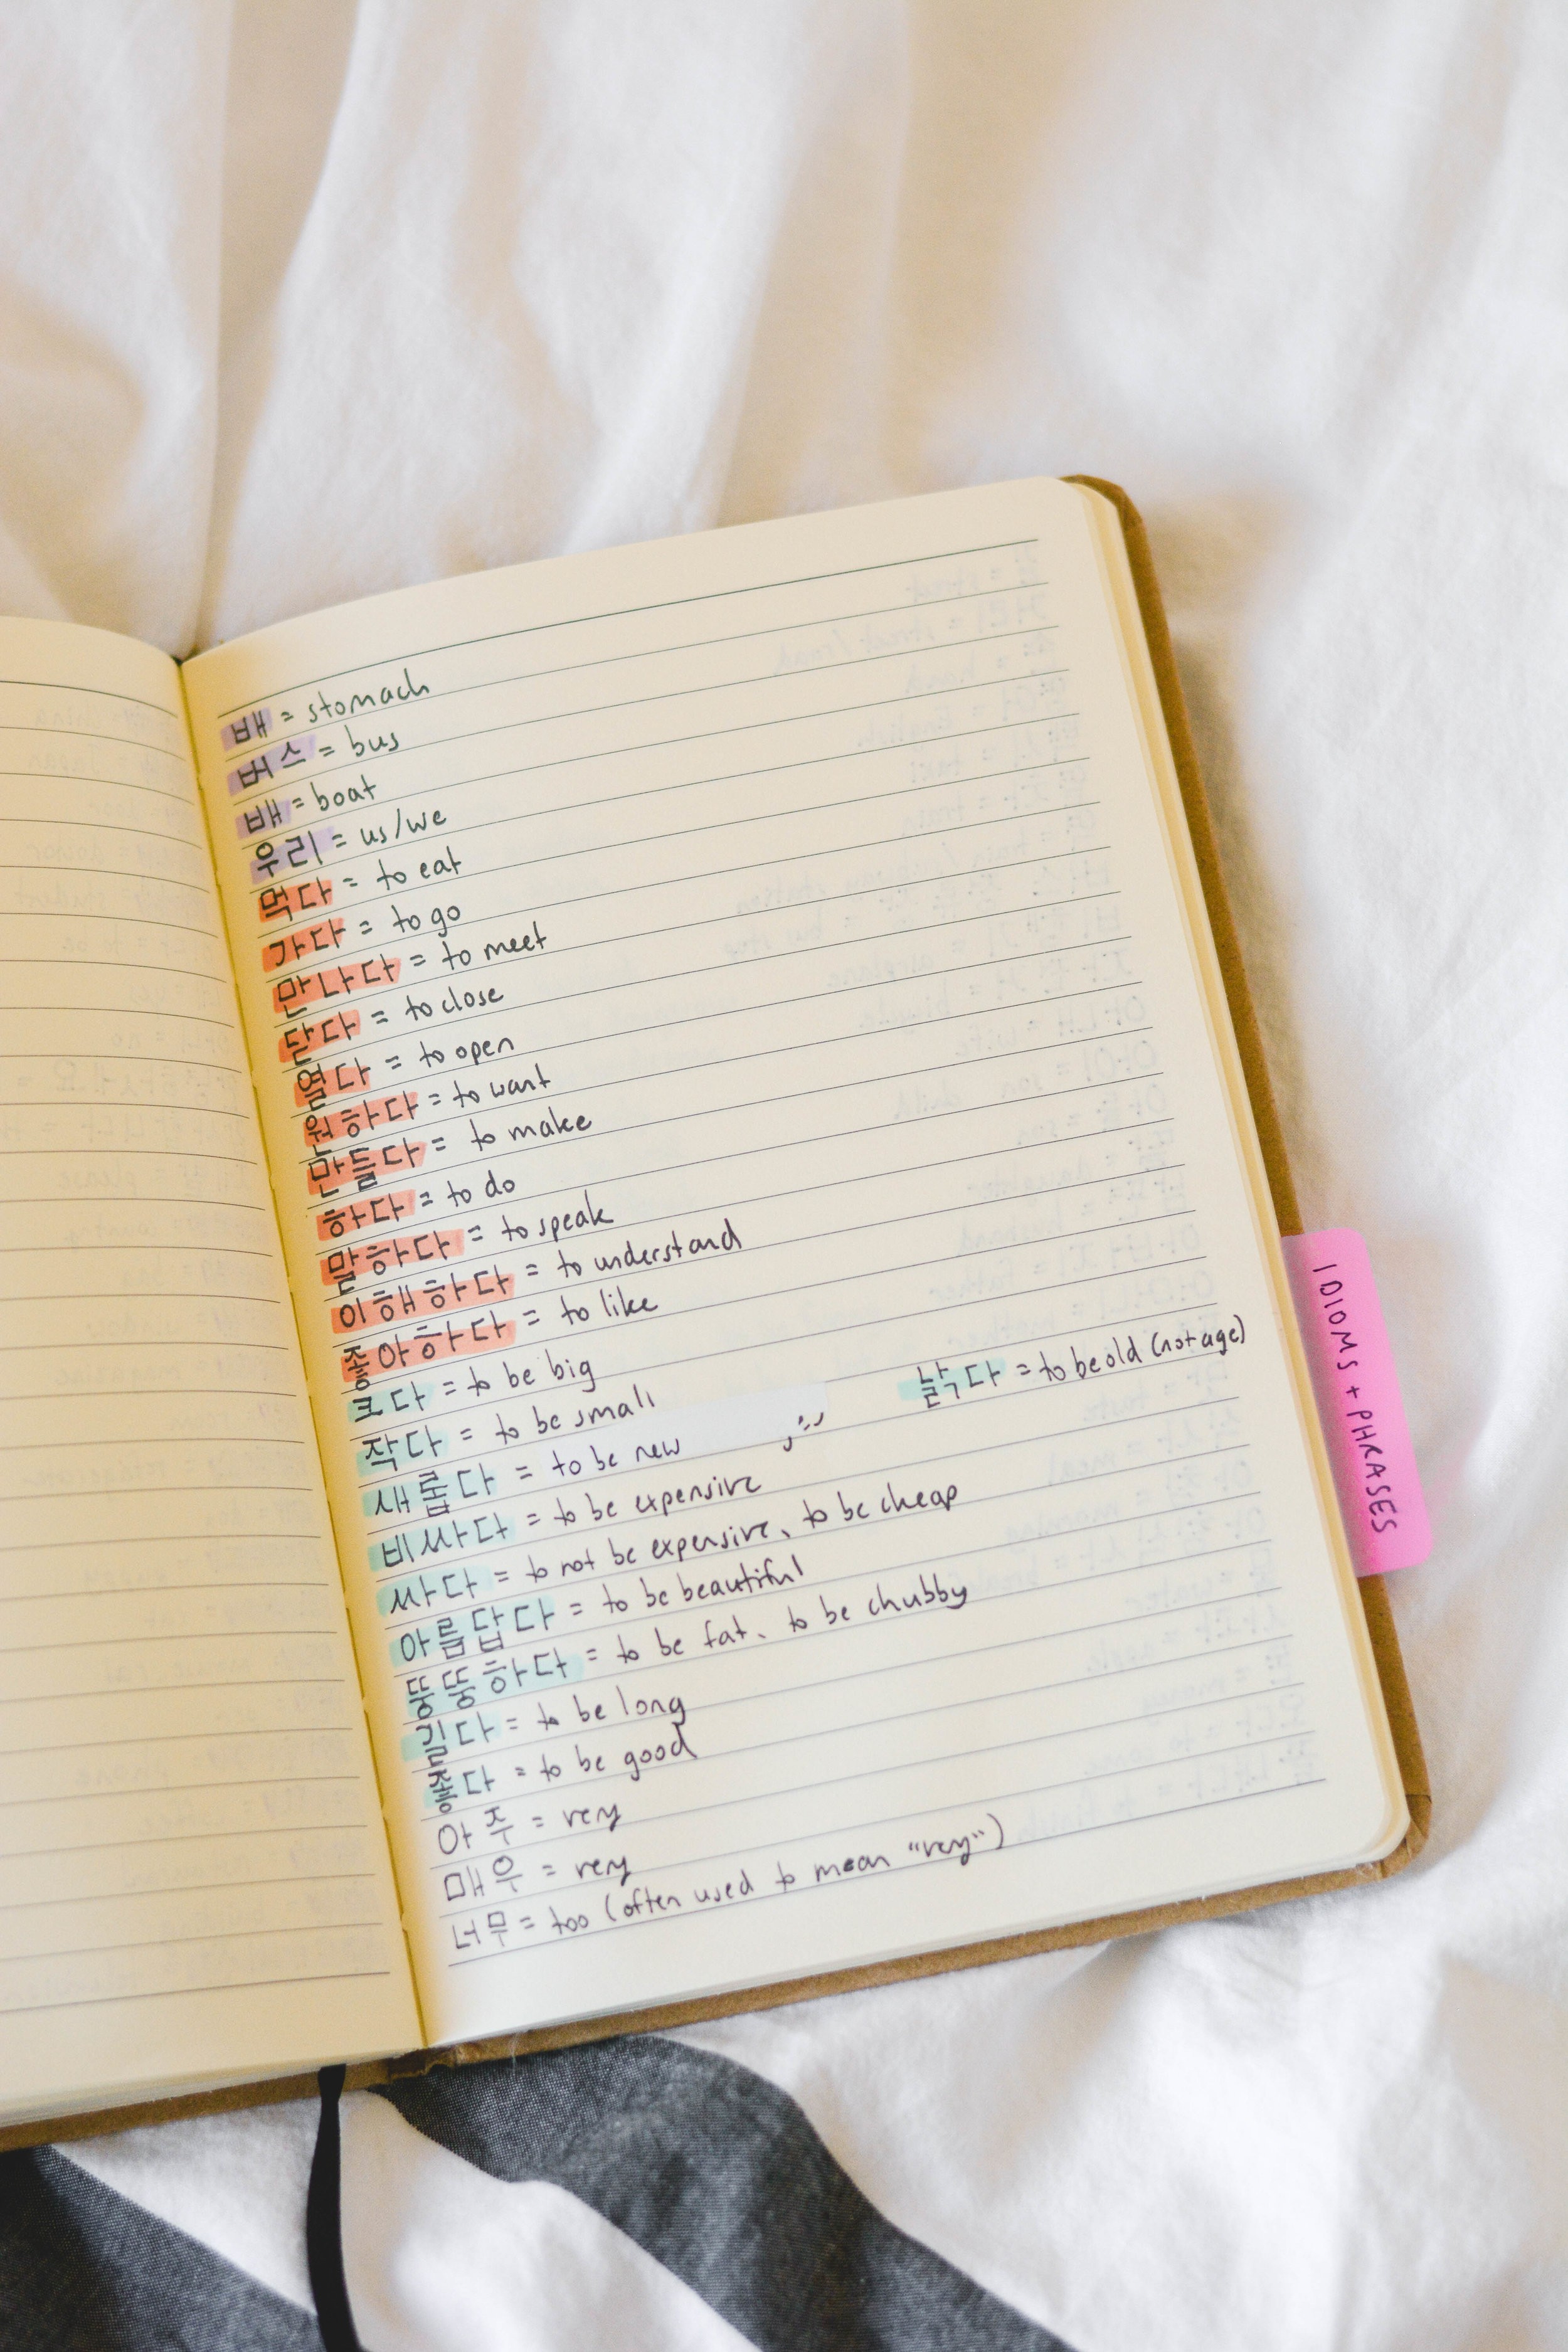 배 = stomach
버스 = bus
배 = boat
우리 = us/we
먹다 = to eat
가다 = to go
만나다 = to meet
닫다 = to close
열다 = to open
원하다 = to want
만들다 = to make
하다 = to do
말하다 = to speak
이해하다 = to understand
좋아하다 = to like
크다 = to be big
낡다 = to be old (not age)
작다 = to be small
새롭다 = to be new
비싸다 = to be expensive
싸다 = to not be expensive、to be cheap
아름답다 = to be beautiful
뚱뚱하다 = to be fat、to be chubby
길다 = to be long
좋다 = to be good
아주 = very
매우 = very
너무 = too (often used to mean "very")
IDIOMS + PHRASES